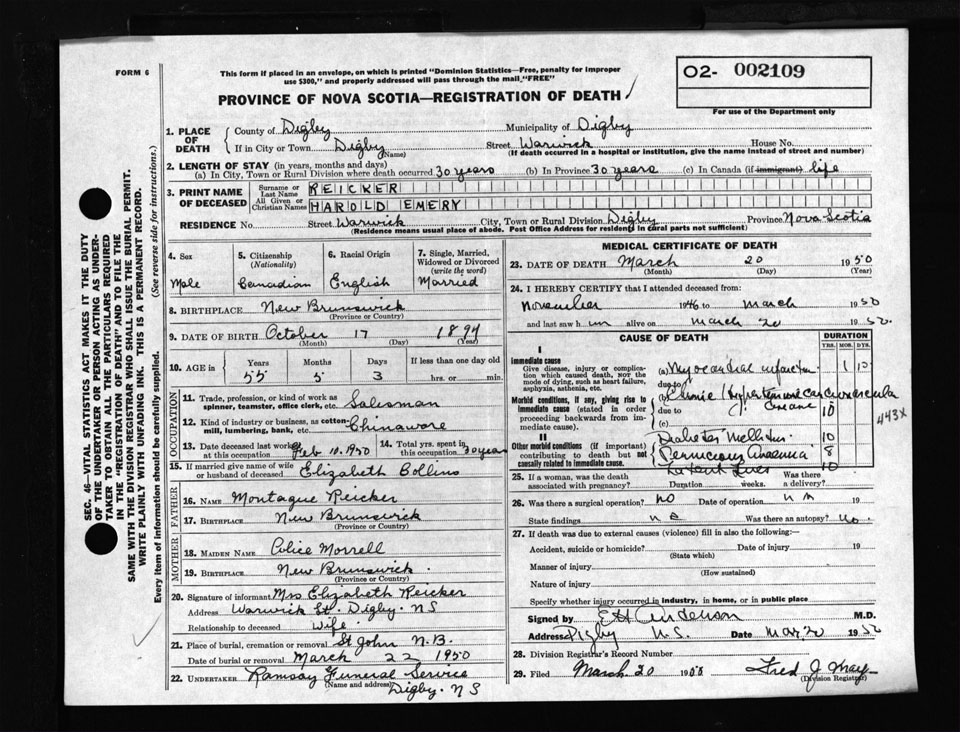 FORM 6
This form if placed in an envelope, on which is printed "Dominion Statistics—Free, penalty for improper
use $300," and properly addressed will pass through the mail "FREE"
PROVINCE OF NOVA SCOTIA—REGISTRATION OF DEATH
02- 002109
For use of the Department only
SEC. 46—VITAL STATISTICS ACT MAKES IT THE DUTY
OF THE UNDERTAKER OR PERSON ACTING AS UNDER-
TAKER TO OBTAIN ALL THE PARTICULARS REQUIRED
IN THE "REGISTRATION OF DEATH" AND TO FILE THE
SAME WITH THE DIVISION REGISTRAR WHO SHALL ISSUE THE BURIAL PERMIT.
WRITE PLAINLY WITH UNFADING INK. THIS IS A PERMANENT RECORD.
Every item of information should be carefully supplied. (See reverse side for instructions.)
1. PLACE OF DEATH
County of Digby Municipality of Digby
If in City or Town Digby Street Warwick House No.
(Name) (If death occurred in a hospital or institution, give the name instead of street and number)
2. LENGTH OF STAY (in years, months and days)
(a) In City, Town or Rural Division where death occurred 30 years (b) In Province 30 years (c) In Canada (if immigrant) life
3. PRINT NAME OF DECEASED
Surname or Last Name REICKER
All Given or Christian Names HAROLD EMERY
RESIDENCE No. Street Warwick City, Town or Rural Division Digby Province Nova Scotia
(Residence means usual place of abode. Post Office Address for residents in rural parts not sufficient)
4. Sex 5. Citizenship (Nationality) 6. Racial Origin 7. Single, Married, Widowed or Divorced (write the word)
Male Canadian English Married
8. BIRTHPLACE New Brunswick
(Province or Country)
9. DATE OF BIRTH October 17 1894
(Month) (Day) (Year)
10. AGE in Years Months Days If less than one day old
55 5 3 hrs. or min.
OCCUPATION
11. Trade, profession or kind of work as spinner, teamster, office clerk, etc. Salesman
12. Kind of industry or business, as cotton-mill, lumbering, bank, etc. Chinaware
13. Date deceased last worked at this occupation Feb 10, 1950 14. Total yrs. spent in this occupation 30 years
15. If married give name of wife or husband of deceased Elizabeth Collins
FATHER
16. NAME Montague Reicker
17. BIRTHPLACE New Brunswick
(Province or Country)
MOTHER
18. MAIDEN NAME Morrell
19. BIRTHPLACE New Brunswick.
(Province or Country)
20. Signature of informant Mrs Elizabeth Reicker
Address Warwick St. Digby. NS
Relationship to deceased Wife.
21. Place of burial, cremation or removal St John N.B.
Date of burial or removal March 22 1950
22. UNDERTAKER Ramsay Funeral Service
(Name and address) Digby. NS
MEDICAL CERTIFICATE OF DEATH
23. DATE OF DEATH March 20 1950
(Month) (Day) (Year)
24. I HEREBY CERTIFY that I attended deceased from:
November 1946 to March 1950
and last saw him alive on March 20 1950.
CAUSE OF DEATH DURATION
YRS. MOS. DYS.
I
Immediate cause
Give disease, injury or complication which caused death, not the mode of dying, such as heart failure, asphyxia, asthenia, etc.
(a) Myocardial infarction 1 10
due to
Morbid conditions, if any, giving rise to immediate cause (stated in order proceeding backwards from immediate cause).
(b) Chronic Hypertensive cardiovascular disease 10
due to
(c)
443X
II
Other morbid conditions (if important) contributing to death but not causally related to immediate cause.
Diabetes Mellitus 10
Pernicious Anaemia 8
Latent Lues 10
25. If a woman, was the death associated with pregnancy? Duration weeks. Was there a delivery?
26. Was there a surgical operation? no Date of operation 19
State findings Was there an autopsy? no.
27. If death was due to external causes (violence) fill in also the following:—
Accident, suicide or homicide? Date of injury 19
(State which)
Manner of injury
(How sustained)
Nature of injury
Specify whether injury occurred in industry, in home, or in public place
Signed by E H Anderson M.D.
Address Digby N.S. Date Mar 20 1950
28. Division Registrar's Record Number
29. Filed March 20 1950 Fred J May
(Division Registrar)